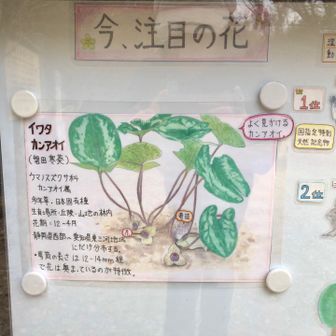 今、注目の花
イワタ
カンアオイ
(磐田寒葵)
ウマノスズクサ科
カンアオイ属
多年草、日本固有種
生育場所：丘陵・山地の林内
花期：12～4月
静岡県西部～愛知県東三河地域
にだけ分布する。
・萼筒の長さは12-14mm程
で花は奥まっているのが特徴。
よく見かける
カンアオイ。
国指定特別
天然記念物
1位
2位